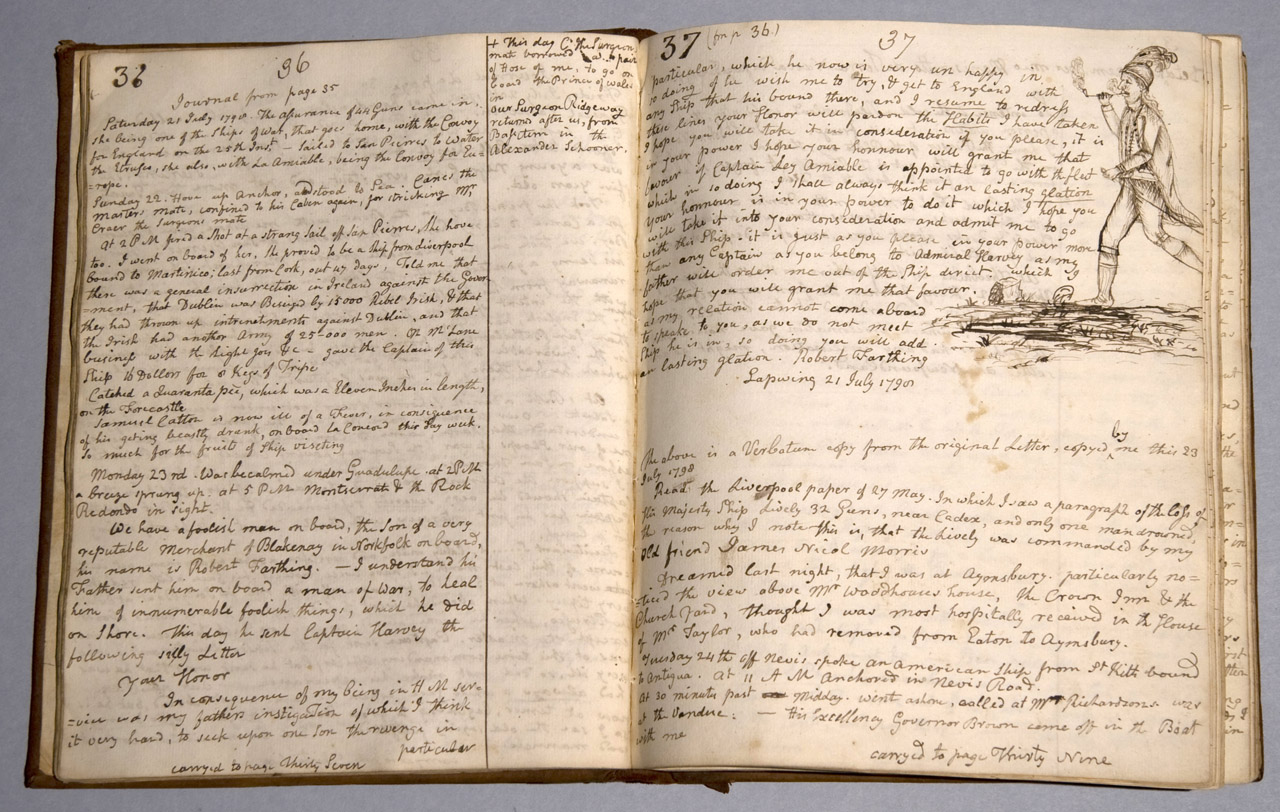 36
36
Journal from page 35
Saturday 21 July 1798. The assurance of 44 Guns came in,
she being one of the Ships of War, that goes home, with the Convoy
for England on the 25th Inst — sailed to San Pierres to Water
the Etrusco, she also, with La Amiable, being the Convoy for Eu-
=rope.
Sunday 22. Hove up Anchor, and stood to Sea. the
Masters mate, confined to his Cabin again, for striking Mr
the Surgeons mate
At 2 PM fired a Shot at a strang Sail off San Pierres, She hove
too. I went on board of her, She proved to be a Ship from Liverpool
bound to Martinico; last from Cork, out 47 days, Told me that
there was a general insurrection in Ireland against the Gover
=ment, that Dublin was Beseiged by 15000 Ribel Irish, & that
they had thrown up intrenchments against Dublin, and that
the Irish had another Army of 25-000 men. On Mr Lane
business with the Kight goes &c – gave the Captain of this
Ship 16 Dollors for 8 Kegs of Tripe
Catched a Quaranta pie, which was a Eleven Inches in length,
on the Forecastle
Samuel Catton is now ill of a Fever, in consequence
of his geting beastly drunk, on board La Concord this Day week.
So much for the fruits of Ship viseting
Monday 23rd. Was becalmed under Guadulupe. at 2 PM
a breeze sprung up: at 5 PM Montserrat & the Rock
Redondo in sight.
We have a foolish man on board, the son of a very
reputable Merchant of Blakenay in Norkfolk on board,
his name is Robert Farthing. — I understand his
Father sent him on board a man of War, to heal
him of innumerable foolish things, which he did
on Shore. This day he sent Captain Harvey the
following silly Letter
Your Honor
In consequence of my being in H M ser-
=vice was my fathers instigation of which I think
it very hard, to seek upon one son the revenge in
particular
carryed to page Thirty Seven
+ This day the Surgeon
mate borrowed a pair
of Hose of me, to go on
board the Prince of Wales
in
our Surgeon Ridgeway
returns after us, from
in the
Alexander Schooner.
37 (fm p 36)
37
particular, which he now is very un happy in
so doing of he wish me to try, & get to England with
any Ship that his bound there, and I resume to redress
these lines your Honor will pardon the Habits I have taken
I hope you will take it in consideration if you please, it is
in your power I hope your honnour will grant me that
favour of Captain Ley Amiable is appointed to go with the fleet
which in so doing I shall always think it an lasting glation
Your honnour is in your power to do it which I hope you
will take it into your consideration and admit me to go
with this Ship. it is just as you please in your power more
than any Captain as you belong to Admiral Harvey as my
father will order me out of the Ship direct. which I
hope that you will grant me that favour.
as my relation cannot come aboard
to speake to you, as we do not meet
Ship he is in, so doing you will add
an lasting glation. Robert Farthing
Lapwing 21 July 1798
The above is a Verbatum copy from the original Letter, copyed by me this 23
July 1798
Read the Liverpool paper of 27 May. In which I saw a paragraph of the Loss of
His Majesty Ship Lively 32 Guns, near Cadex, and only one man drowned,
the reason why I note this is, that the Lively was commanded by my
Old friend James Nicol Morris
Dreamed last night, that I was at Aynsbury. particularly no=
=ticed the view above Mr Woodhouses house, the Crown Inn & the
Church Yard, thought I was most hospitally received in the House
of Mr Taylor, who had removed from Eaton to Aynsbury.
Tuesday 24th off Nevis spoke an American Ship from St Kitts bound
to Antigua. At 11 A M Anchored in Nevis Road.
At 30 minutes past Midday. went ashore, called at Mr Richardsons was
at the Vendue: — His Excellency Governor Brown came off in the Boat
with me
carryed to page Thirty Nine